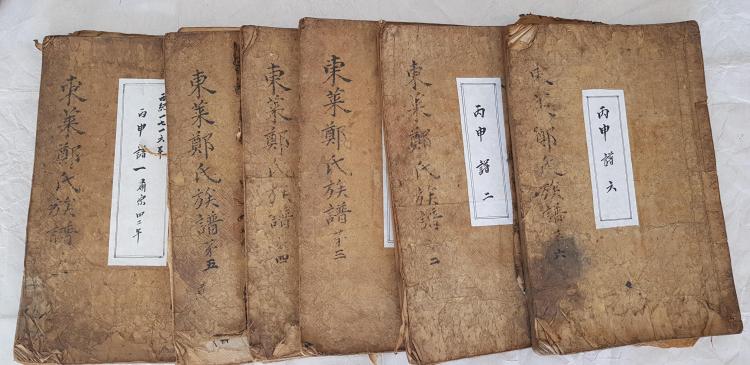 東萊鄭氏族譜 一
西紀一七一六年
丙申譜 一 肅宗四二年
東萊鄭氏族譜 第五
東萊鄭氏族譜 第四
東萊鄭氏族譜 第三
東萊鄭氏族譜 二
丙申譜 二
東萊鄭氏族譜 六
丙申譜 六